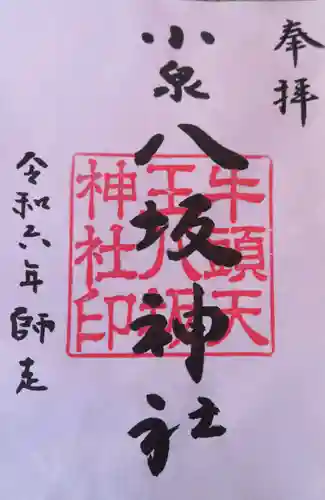 奉拝
小泉
八坂神社
牛頭天
王八坂
神社印
令和六年師走